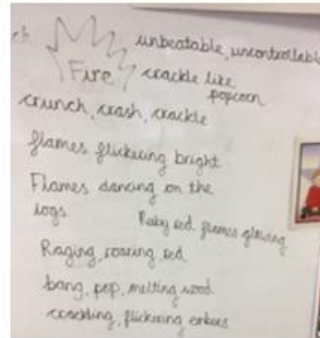 ch
unbeatable, uncontrollable
Fire
crackle like
popcorn
crunch, crash, crackle
flames flickering bright
Flames dancing on the
logs.
Ruby red flames glowing
Raging, roaring, red
bang, pop, melting wood
crackling, flickering embers